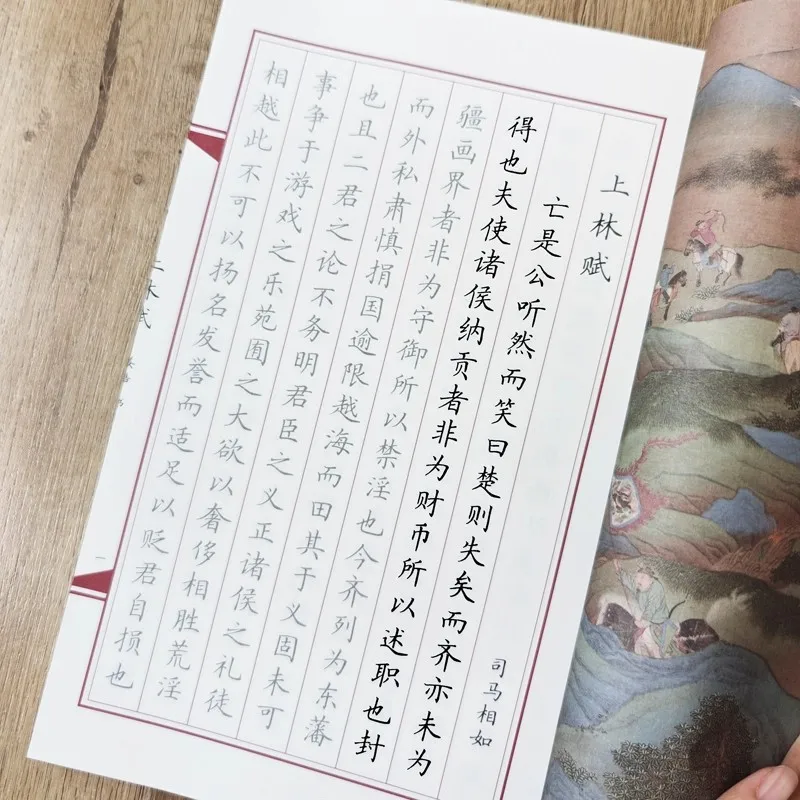 上林赋
司马相如
亡是公听然而笑曰楚则失矣而齐亦未为
得也夫使诸侯纳贡者非为财币所以述职也封
疆画界者非为守御所以禁淫也今齐列为东藩
而外私肃慎捐国逾限越海而田其于义固未可
也且二君之论不务明君臣之义正诸侯之礼徒
事争于游戏之乐苑囿之大欲以奢侈相胜荒淫
相越此不可以扬名发誉而适足以贬君自损也
上林赋
一